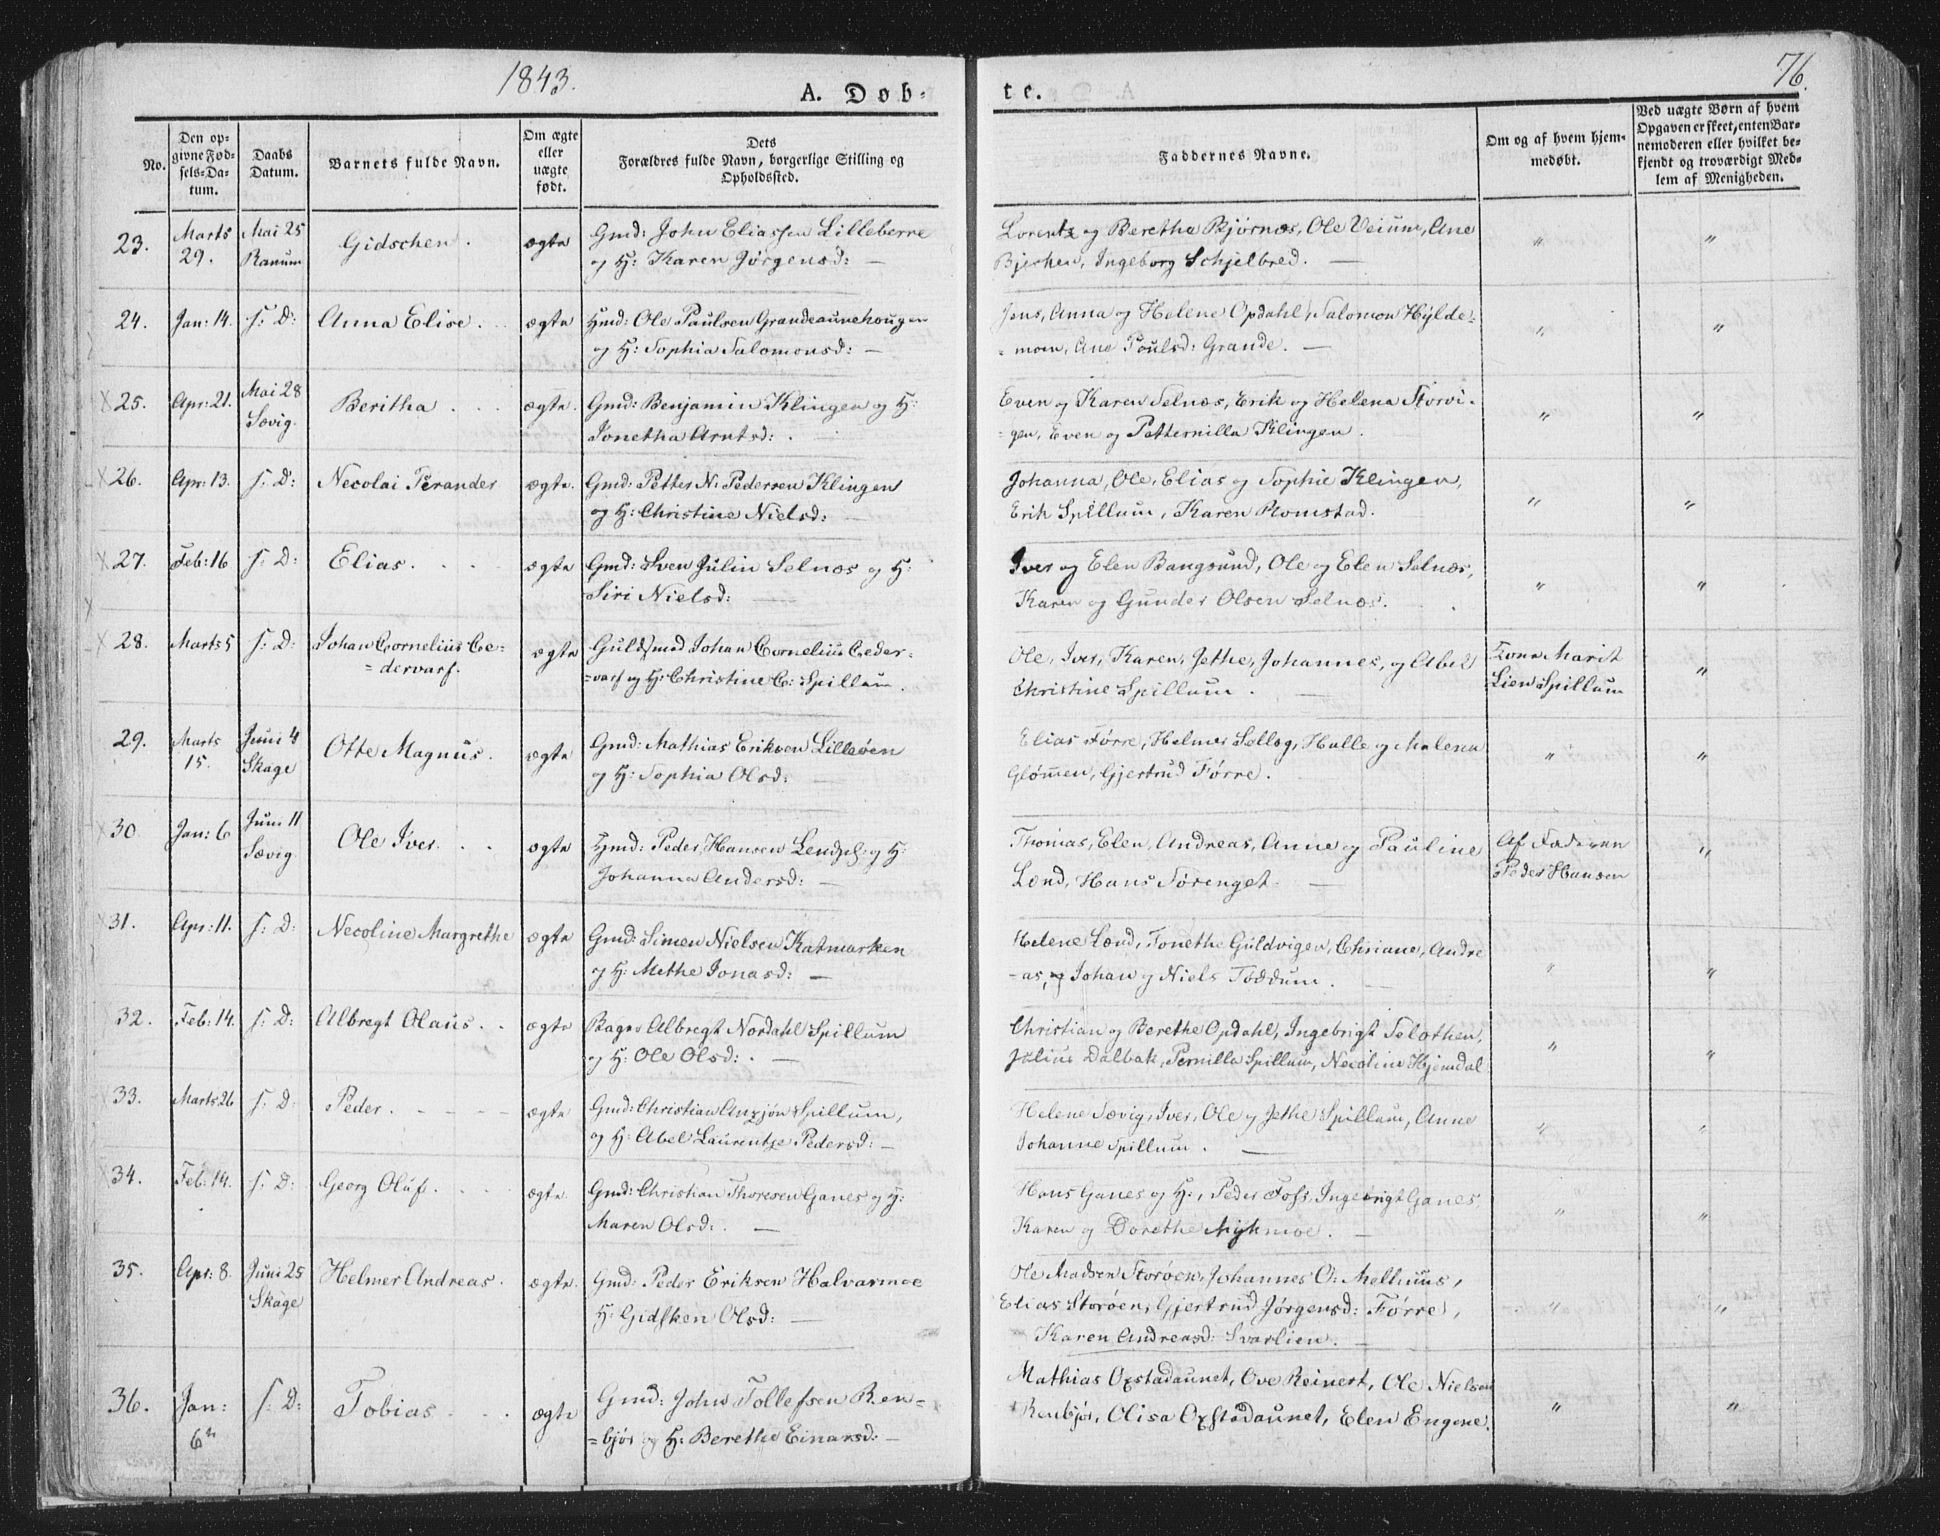 1843.
A. Døb-
te.
76.
No.
Den op-
givne Fød-
sels-Da-
tum.
Daabs
Datum.
Barnets fulde Navn.
Om ægte
eller
uægte
født.
Dets
Forældres fulde Navn, borgerlige Stilling og
Opholdssted.
Faddernes Navne.
Om og af hvem hjem-
medøbt.
Ved uægte Børn af hvem
Opgaven er skeet, enten Bar-
nemoderen eller hvilket be-
kjendt og troværdigt Med-
lem af Menigheden.
23. Marts 29. Mai 25 Ranum Gidschen. ægte
Gmd: John Eliassen Lilleberre
og H: Karen Jørgensd: —
Lorentz og Beretha Bjørnes, Ole Veium, Ane
Bjerken, Ingeborg Schjelbred. —
" "
24. Jan: 14. s: D: Anna Elise. ægte
Hmd: Ole Paulsen Grandeaunehougen
og H: Sophia Salomonsd: —
Jens, Anna og Helene Opdahl, Salomon Hylde-
-moen, Ane Poulsd: Grande. —
" "
25. Apr: 21. Mai 28 Sævig. Beritha. ægte.
Gmd: Benjamin Klingen og H:
Jonetha Arntsd: . —
Even og Karen Selnæs, Erik og Helena Storvi-
-gen, Even og Petternilla Klingen.
" "
26. Apr: 13. s: D: Necolai Perander ægte.
Gmd: Petter N: Pedersen Klingen
og H: Christine Nielsd: —
Johanna, Ole, Elias og Sophie Klingen,
Erik Spillum, Karen Romstad.
" "
27. Feb: 16 s: D: Elias. ægte
Gmd: Sven Julin Selnæs og H:
Siri Nielsd: —
Iver og Elen Bangsund, Ole og Elen Selnæs,
Karen og Gunder Olsen Selnæs.
" "
28. Marts 5 s: D: Johan Cornelius Ce-
=dervarf. ægte
Guldsmed Johan Cornelius Ceder-
=varf og H: Christine C: Spillum.
Ole, Iver, Karen, Jethe, Johannes, og Abel
Christine Spillum. —
Kone Marit
Lien Spillum
"
29. Marts 15. Juni 4 Skage Otte Magnus. ægte
Gmd: Mathias Eriksen Lilleøen
og H: Sophia Olsd: —
Elias Førre, Helmer Selleg, Halle og Malena
Glømen, Gjertrud Førre.
" "
30. Jan: 6 Juni 11 Sævig Ole Iver. ægte
Hmd: Peder Hansen Lendsel og H:
Johanna Andersd: —
Thomas, Elen, Andreas, Anne og Pauline
Lænd, Hans Sørenget. —
Af Faderen
Peder Hansen
"
31. Apr: 11. s: D: Necoline Margrethe ægte
Gmd: Simen Nielsen Katmarken
og H: Methe Jonasd: —
Helene Lænd, Jonethe Guldvigen, Chriane, Andre
-as, og Johan og Niels Tøddum.
" "
32. Feb: 14. s: D: Albregt Olaus. ægte
Bager Albregt Nordahl Spillum
og H: Ole Olsd: . —
Christian og Berethe Opdahl, Ingebrigt Seløthen,
Julius Dalbak, Pernilla Spillum, Necoline Hjemdal
" "
33. Marts 26 s: D: Peder. ægte
Gmd: Christian Anzjøn Spillum,
og H: Abel Laurentze Pedersd: —
Helene Sævig, Iver, Ole og Jethe Spillum, Anne
Johanne Spillum. —
" "
34. Feb: 14. s: D: Georg Oluf. ægte.
Gmd: Christian Thoresen Ganes og H:
Maren Olsd: . —
Hans Ganes og H:, Peder Foss, Ingebrigt Ganes
Karen og Dorethe Mykmoe. —
" "
35. Apr: 8. Juni 25 Skage Helmer Andreas. ægte.
Gmd: Peder Eriksen Halvarmoe
H: Gidsken Olsd: —
Ole Madsen Storøen, Johannes O: Melhuus,
Elias Storøen, Gjertrud Jørgensd: Førre,
Karen Andreasd: Svarlien. —
" "
36. Jan: 6te s: D: Tobias. ægte
Gmd: John Tollefsen Ren-
=bjør og H: Berethe Einarsd: —
Mathias Oxstadaunet, Ove Reinert, Ole Nielsen
Renbjør, Olisa Oxstadaunet, Elen Engene.
" "